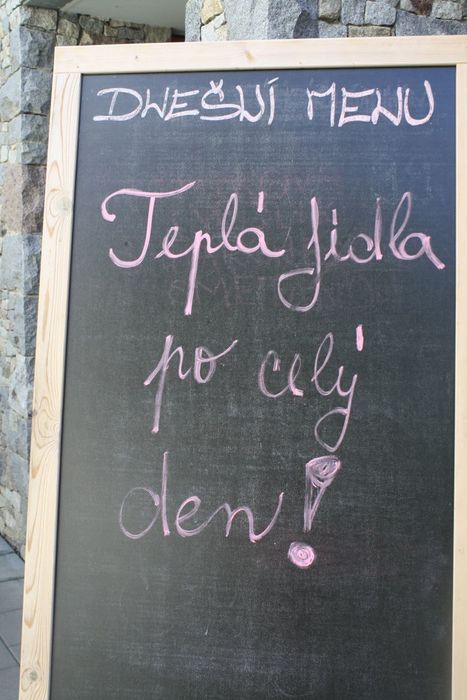 DNEŠNÍ MENU
Teplá jídla
po celý
den!